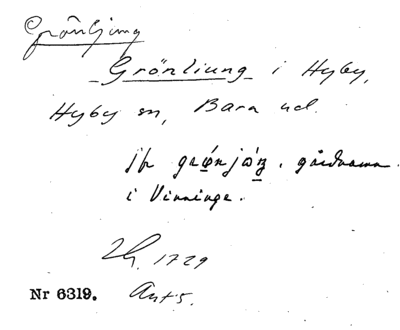 Grönljung
Grönliung i Hyby,
Hyby sn, Bara hd.
Jfr gårdnamn
i Vinninge.
1729
Nr 6319. Ant 5.